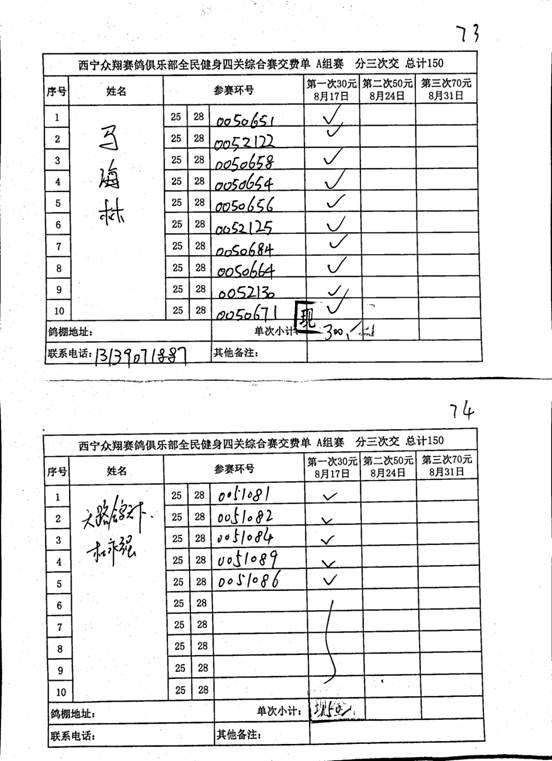 73
西宁众翔赛鸽俱乐部全民健身四关综合赛交费单 A组赛 分三次交 总计150
序号 姓名 参赛环号 第一次30元 8月17日 第二次50元 8月24日 第三次70元 8月31日
马海林
1 25 28 0050651 ✓
2 25 28 0052122 ✓
3 25 28 0050658 ✓
4 25 28 0050654 ✓
5 25 28 0050656 ✓
6 25 28 0052125 ✓
7 25 28 0050684 ✓
8 25 28 0050664 ✓
9 25 28 0052130 ✓
10 25 28 0050671 ✓
鸽棚地址: 单次小计: 现 300
联系电话: 13139071887 其他备注:
74
西宁众翔赛鸽俱乐部全民健身四关综合赛交费单 A组赛 分三次交 总计150
序号 姓名 参赛环号 第一次30元 8月17日 第二次50元 8月24日 第三次70元 8月31日
1 25 28 0051081 ✓
2 25 28 0051082 ✓
3 25 28 0051084 ✓
4 25 28 0051089 ✓
5 25 28 0051086 ✓
6 25 28
7 25 28
8 25 28
9 25 28
10 25 28
鸽棚地址: 单次小计:
联系电话: 其他备注: